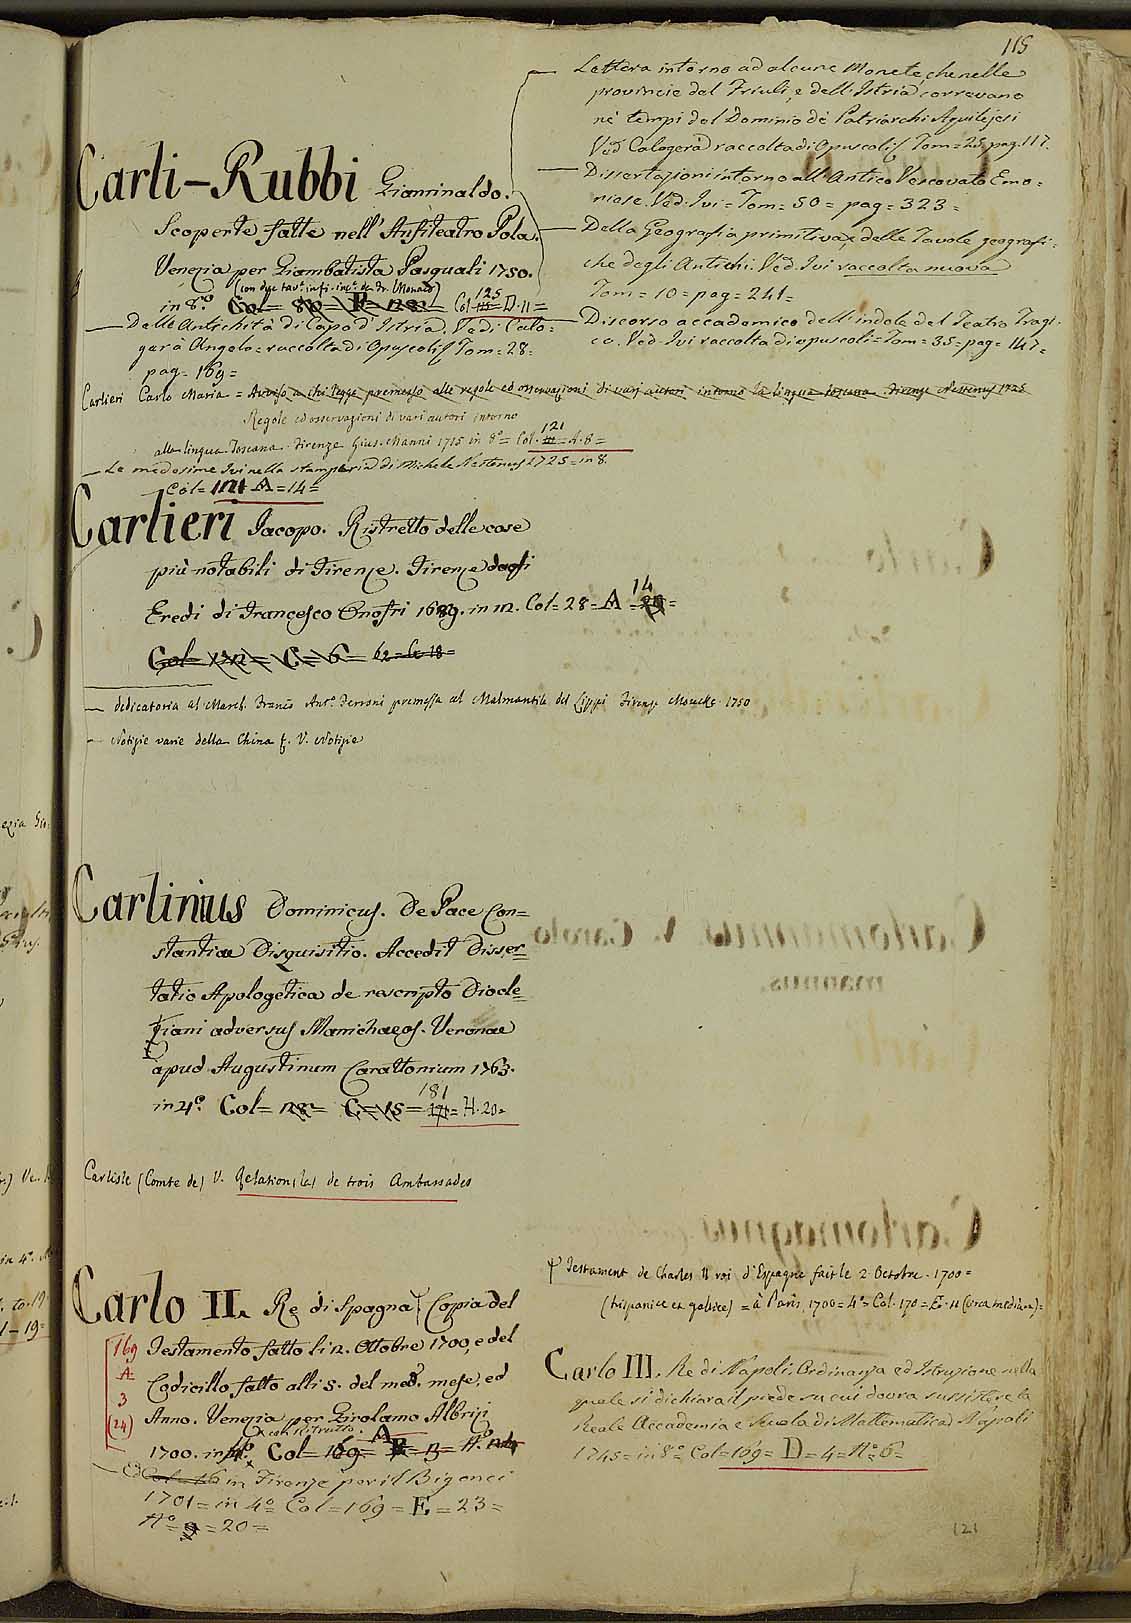 115
Carli-Rubbi Gianrinaldo.
Scoperte fatte nell'Anfiteatro Pola.
Venezia per Giambatista Pasquali 1750.
(con due tav.
in 8.º Col= 80= E= 128= Col 125 D·11=
— Delle Antichità di Capo d'Istria. Vedi Calo=
gerà Angelo= raccolta di Opuscoli Tom= 28=
pag= 169=
— Lettera intorno ad alcune Monete, che nelle
provincie del Friuli, e dell'Istria correvano
né tempi del Dominio dé Patriarchi Aquilejesi
Ved Calogerà raccolta di opuscoli Tom= 25 pag. 117.
— Dissertazioni intorno all'Antico Vescovato Emo=
niese. Ved. Ivi= Tom= 50= pag= 323=
— Della Geografia primitiva, e delle Tavole geografi=
che degli Antichi. Ved. Ivi raccolta nuova
Tom= 10= pag= 241=
— Discorso accademico dell'indole del Teatro Tragi=
co. Ved. Ivi raccolta di opuscoli= Tom= 35= pag= 147=
Carlieri Carlo Maria = Avviso a chi legge premesso alle regole ed osservazioni di varj autori intorno la lingua toscana Firenze Nestenus 1725
Regole ed osservazioni di vari autori intorno
alla lingua Toscana. Firenze Gius. Manni 1715 in 8º= Col. 121 = A·8=
— Le medesime Ivi nella stamperia di Michele Nestenus 1725= in 8.
Col= 121 A= 14=
Carlieri Jacopo. Ristretto delle cose
più notabili di Firenze. Firenze dagli
Eredi di Francesco Onofri 1689. in 12. Col= 28= A= 14 20=
Col= 132= C= 6= 62= C= 18=
— dedicatoria al March. Franc. Ant.º Ferroni premessa al Malmantile del Lippi Firenze Moucke 1750
— Notizie varie della China f. V. Notizie
Carlinius Dominicus. De Pace Con=
stantiae Disquisitio. Accedit Disser=
tatio Apologetica de rescripto Diocle=
tiani adversus Manichaeos. Veronae
apud Augustinum Carattonium 1763.
in 4º. Col= 128= C= 15= 181 171= H·20=
Carlisle (Comte de) V. Relation (la) de trois Ambassades
Carlo II. Re di Spagna. Copia del
Testamento fatto li 2. Ottobre 1700, e del
Codicillo fatto alli 5. del med. mese, ed
Anno. Venezia per Girolamo Albrizi
con Ritratto.
1700. in 4º. Col= 169= A E= 13= Nº
169
A
3
(24)
— in Firenze per il Bigonci
1701= in 4º Col= 169= E= 23=
Nº= 20=
Testament de Charles II roi d'Espagne fait le 2 Octobre 1700=
(hispanice et gallice) = à Paris 1700= 4º= Col. 170= E· 11 (circa medium)=
Carlo III. Re di Napoli. Ordinanza ed Istruzione nella
quale si dichiara il piede su cui dovra sussistere la
Reale Accademia e Scuola di Mattematica Napoli
1745= in 8º Col= 169= D= 4= Nº 6=
121